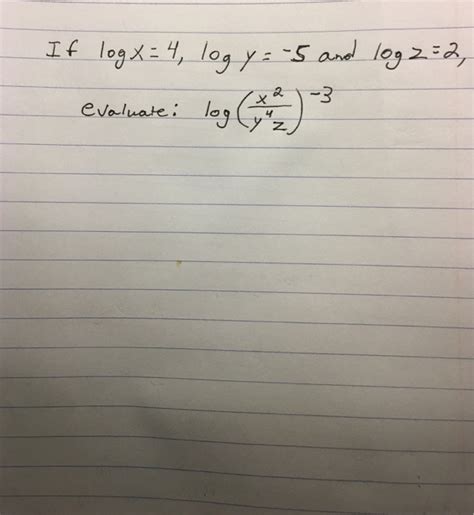 If log x = 4, log y = -5 and log z = 2,
evaluate: log (x²/y⁴z)⁻³